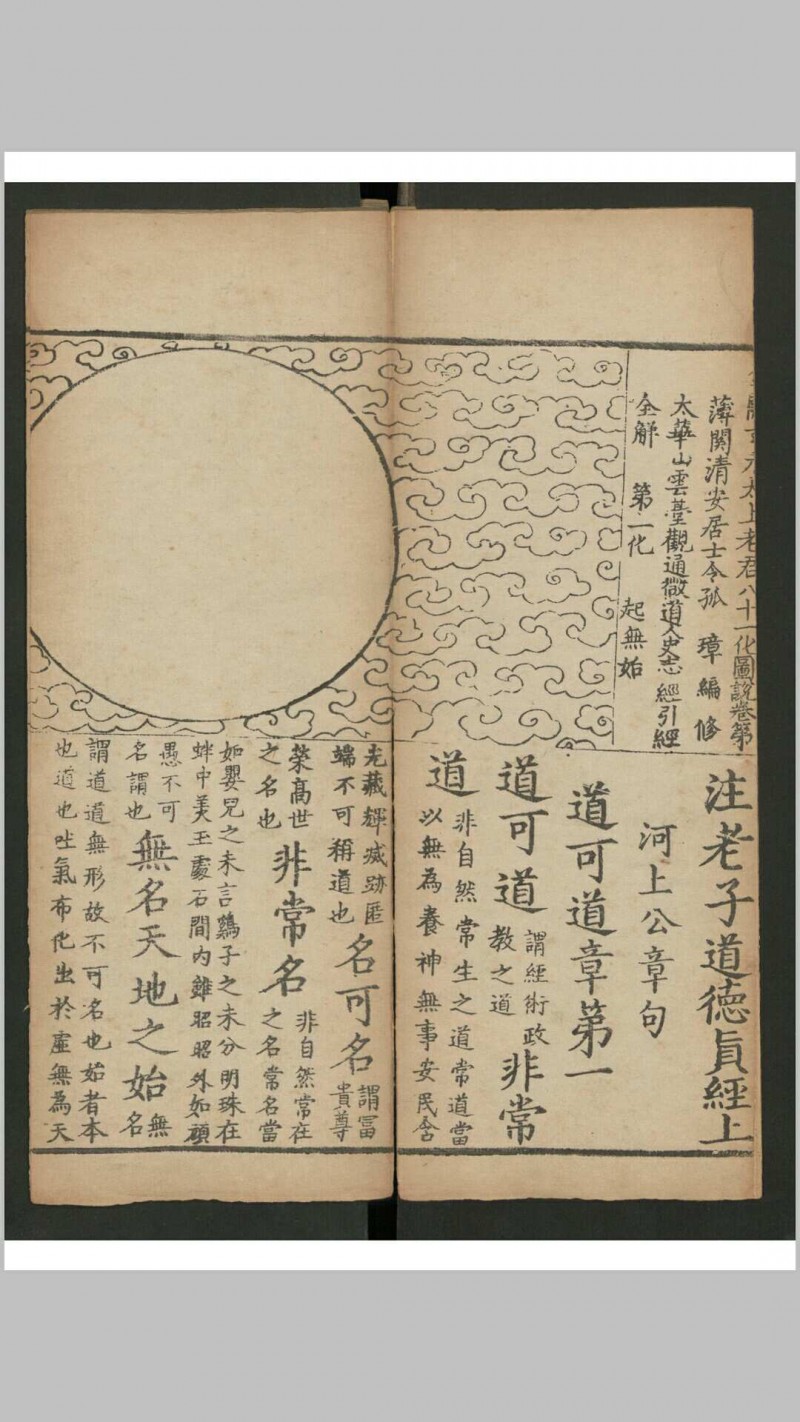 太上老君八十一化圖說卷第
薄関清安居士令狐 璋編修
太華山雲臺觀通微道人史志經引經
全解 第一化 起無始
注老子道德眞經上
河上公章句
道可道章第一
道可道 謂經術政 教之道 非常
道 非自然常生之道常道當 以無為養神無事安民含
光藏輝滅跡匿 端不可稱道也 名可名 謂冨 貴尊
榮高世 之名也 非常名 非自然常在 之名常名當
如嬰兒之未言鷄子之未分明珠在
蚌中美玉處石間内雖昭昭外如頑
愚不可 名謂也 無名天地之始 無 名
謂道道無形故不可名也始者本
也道也吐氣布化出於虛無為天